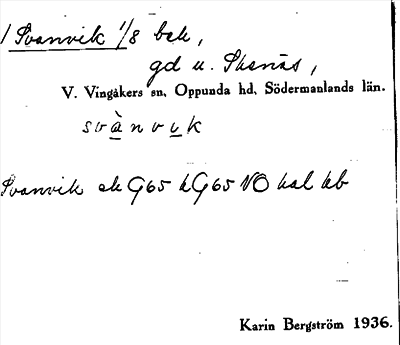 / Svanvik 1/8 bek,
gd u. Skenäs,
V. Vingåkers sn, Oppunda hd, Södermanlands län.
svànvik
Svanvik ek G65 hG65 NO hal kb
Karin Bergström 1936.